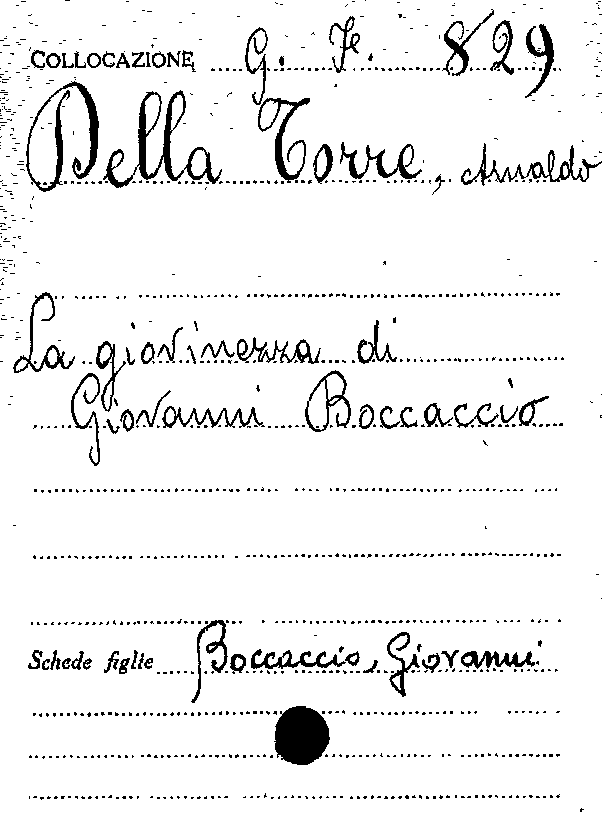 COLLOCAZIONE G. Fe. 829
Della Torre, Arnaldo
La giovinezza di
Giovanni Boccaccio
Schede figlie Boccaccio, Giovanni